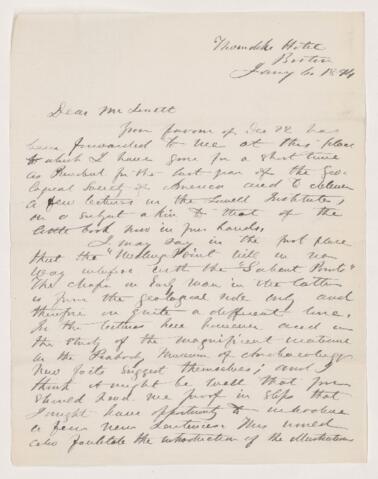 Thorndike Hotel
Boston
Jany 6 1894
Dear Mr
Your favour of Dec 28 has
been forwarded to me at this place
to which I have gone for a short time
as President for the last year of the Geo-
logical Society of America and to deliver
a few lectures in the Lowell Institute,
on a subject akin to that of the
little book now in your hands.
I may say in the first place
that the "Meeting Point" will in no
way interfere with the "Salient Points"
The chapr on Early Man in the latter
is from the geological side only and
therefore on quite a different line.
In the lectures here however and in
the study of the magnificent material
in the Peabody Museum of Archaeology
New facts suggest themselves; and I
think it might be well that you
should send me proof in slips that
I might have opportunity to introduce
a few new Sentences This would
also facilitate the introduction of the illustrations